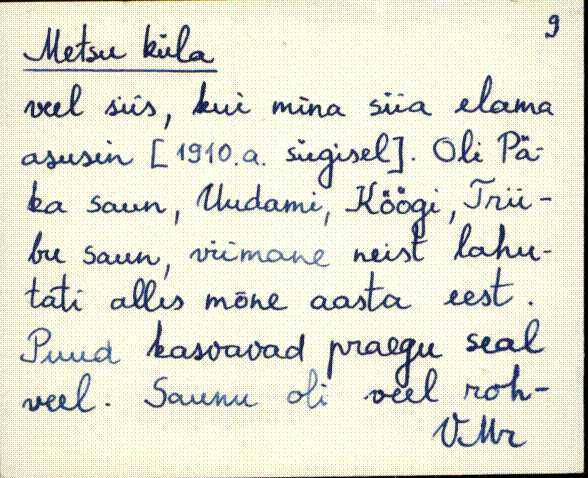 9
Metsu küla
veel siis, kui mina siia elama
asusin [1910.a. sügisel]. Oli Pä-
ka saun, Uudami, Köögi, Trii-
bu saun, viimane neist lahu-
tati alles mõne aasta eest.
Puud kasvavad praegu seal
veel. Saunu oli veel roh-
VMr